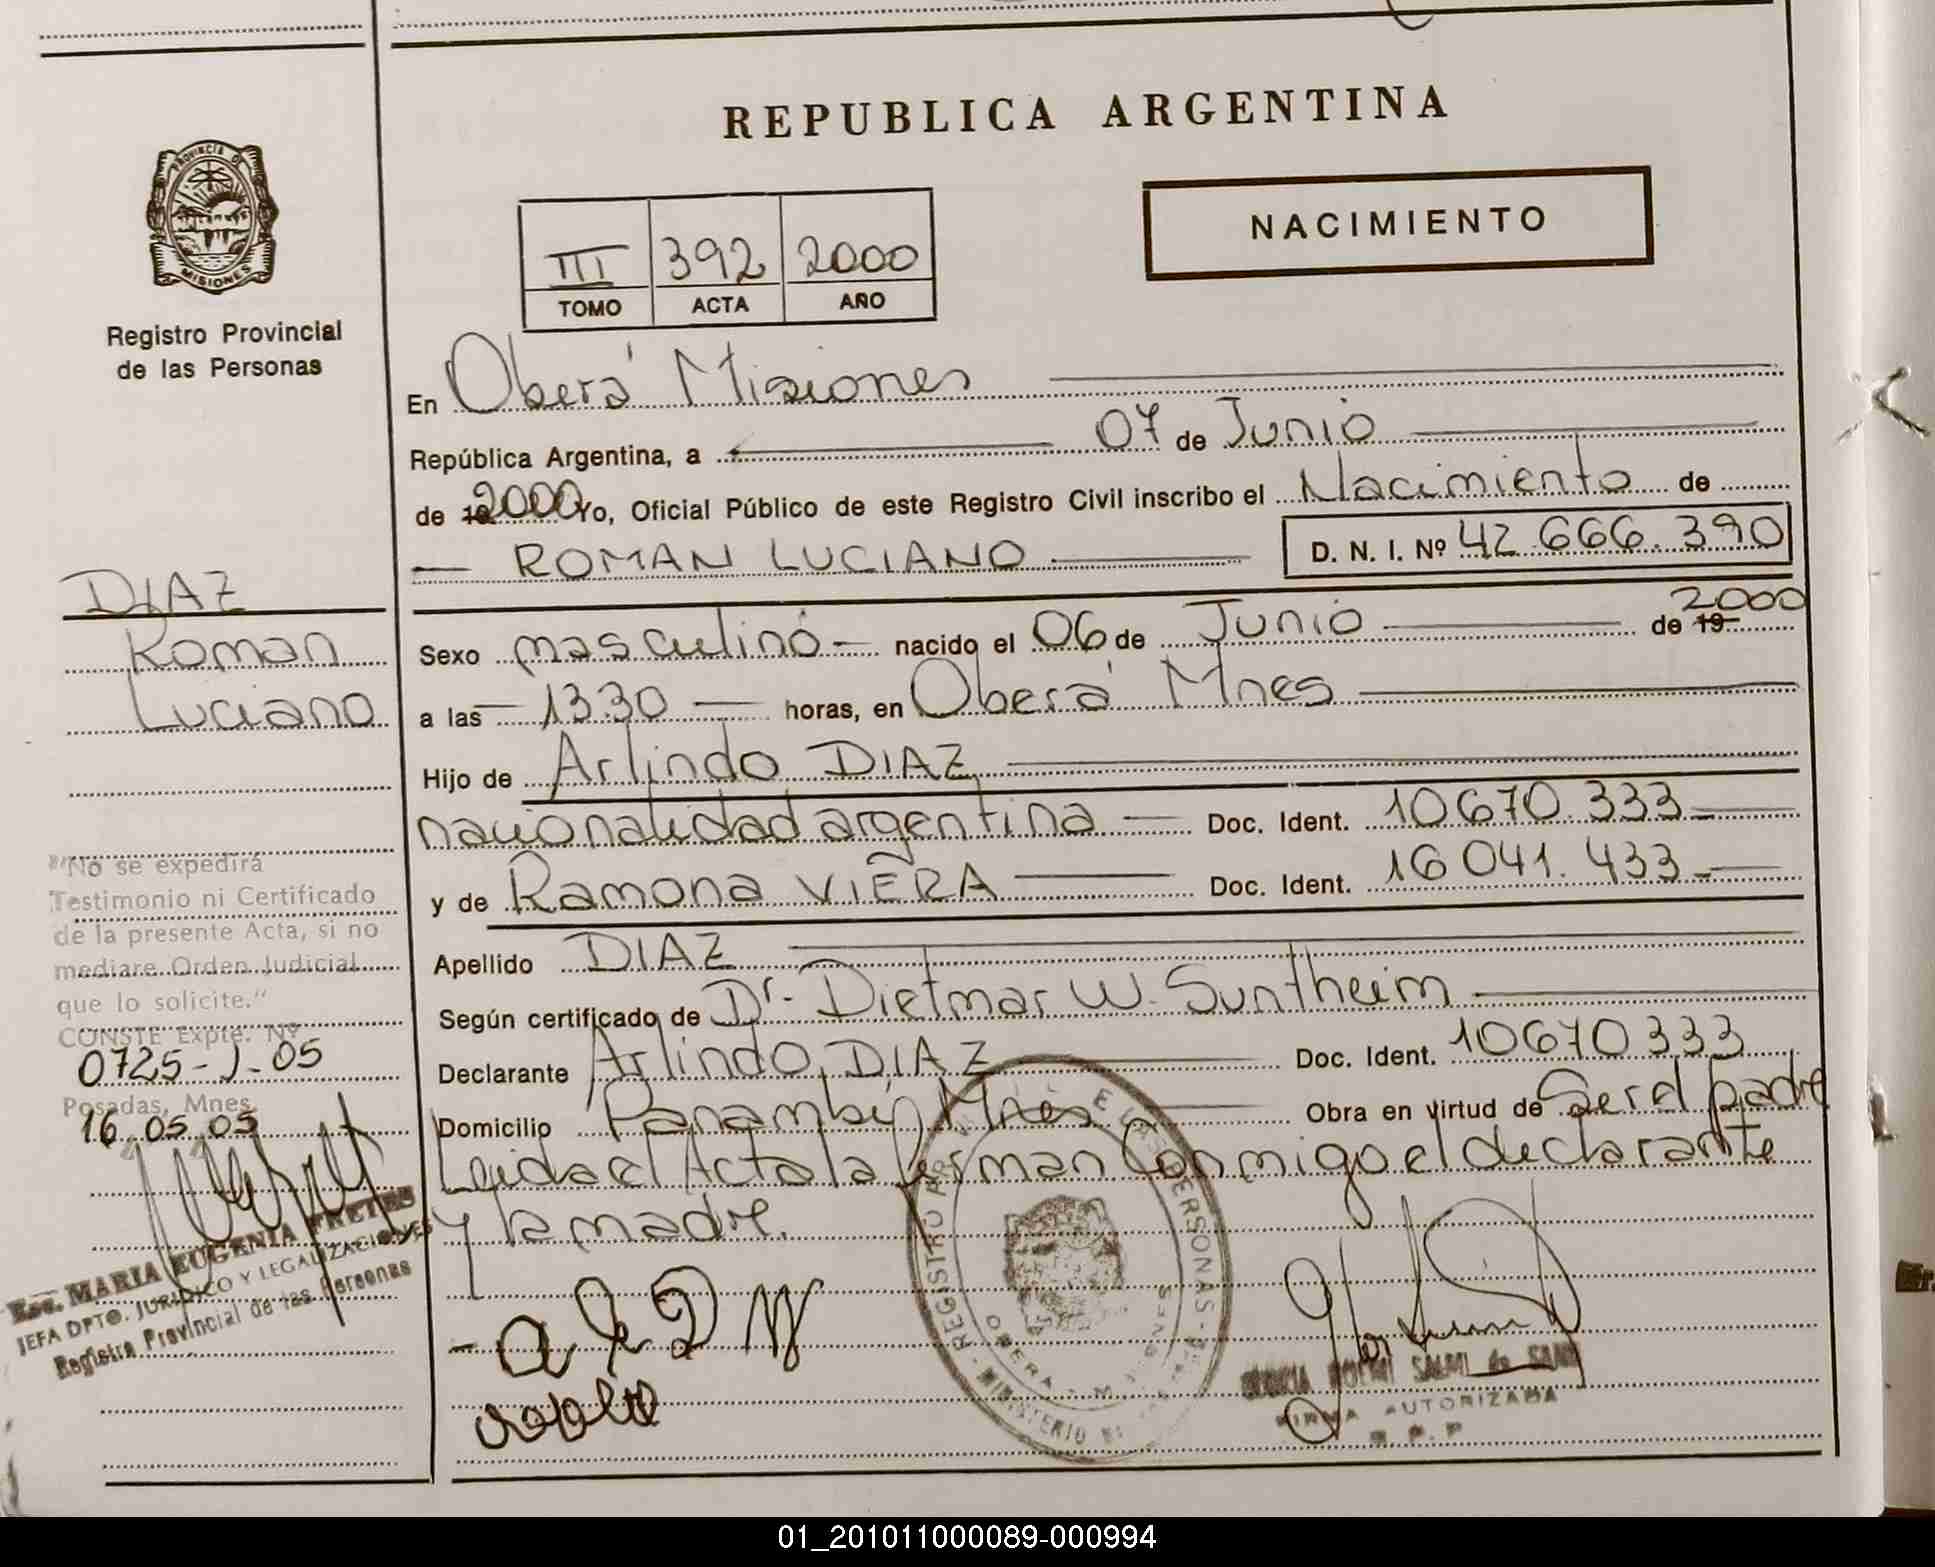 REPUBLICA ARGENTINA
PROVINCIA DE
MISIONES
Registro Provincial
de las Personas
NACIMIENTO
III 392 2000
TOMO ACTA AÑO
En Oberá Misiones
República Argentina, a 07 de Junio
de 19 2000 Yo, Oficial Público de este Registro Civil inscribo el Nacimiento de
ROMAN LUCIANO D. N. I. Nº 42.666.390
DIAZ
Roman
Luciano
Sexo masculino nacido el 06 de Junio de 19 2000
a las 13.30 horas, en Oberá Mnes
Hijo de Arlindo DIAZ
nacionalidad argentina Doc. Ident. 10670.333
y de Ramona VIERA Doc. Ident. 16041.433
Apellido DIAZ
Según certificado de Dr. Dietmar W. Suntheim
Declarante Arlindo DIAZ Doc. Ident. 10670333
Domicilio Panambí Mnes Obra en virtud de Ser el padre
Leida el Acta la firman Conmigo el declarante
y la madre.
"No se expedirá
Testimonio ni Certificado
de la presente Acta, si no
mediare Orden Judicial
que lo solicite."
CONSTE Expte. Nº
0725-J-05
Posadas, Mnes
16 05 05
Esc. MARIA EUGENIA FRETES
JEFA DPTO. JURIDICO Y LEGALIZACIONES
Registro Provincial de las Personas
FIRMA AUTORIZADA
R.P.P
01_201011000089-000994